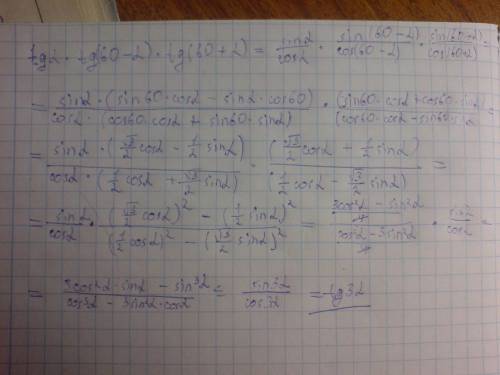 tgα · tg(60-α) · tg(60+α) = sinα/cosα · sin(60-α)/cos(60-α) · sin(60+α)/cos(60+α) =
= sinα · (sin60·cosα - sinα·cos60)/cosα · (cos60·cosα + sin60·sinα) · (sin60·cosα + cos60·sinα)/(cos60·cosα - sin60·sinα
= sinα · (√3/2 cosα - 1/2 sinα)/cosα · (1/2 cosα + √3/2 sinα) · (√3/2 cosα + 1/2 sinα)/(1/2 cosα - √3/2 sinα) =
= sinα/cosα · (√3/2 cosα)² - (1/2 sinα)²/(1/2 cosα)² - (√3/2 sinα)² = 3cos²α - sin²α/4/cos²α - 3sin²α/4 · sinα/cosα =
= 3cos²α · sinα - sin³α/cos³α - 3sin²α·cosα = sin3α/cos3α = tg3α